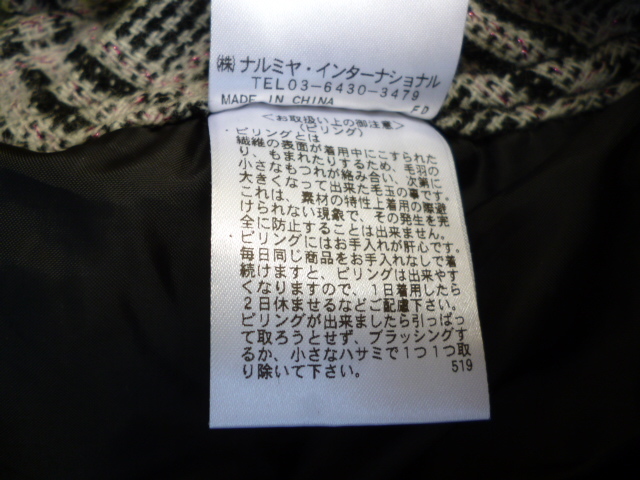 ㈱ ナルミヤ・インターナショナル
TEL03-6430-3479
MADE IN CHINA
FD
<お取扱い上の御注意>
(ピリング)
・ピリングとは
繊維の表面が着用中にこすられた
り、もまれたりするため、毛羽の
小さなもつれが絡み合い、次第に
大きくなって出来た毛玉の事です。
これは、素材の特性上着用の際避
けられない現象で、その発生を完
全に防止することは出来ません。
・ピリングにはお手入れが肝心です。
毎日同じ商品をお手入れなしで着
続けますと、ピリングは出来やす
くなりますので、1日着用したら
2日休ませるなどご配慮下さい。
ピリングが出来ましたら引っぱっ
て取ろうとせず、ブラッシングす
るか、小さなハサミで1つ1つ取
り除いて下さい。
519